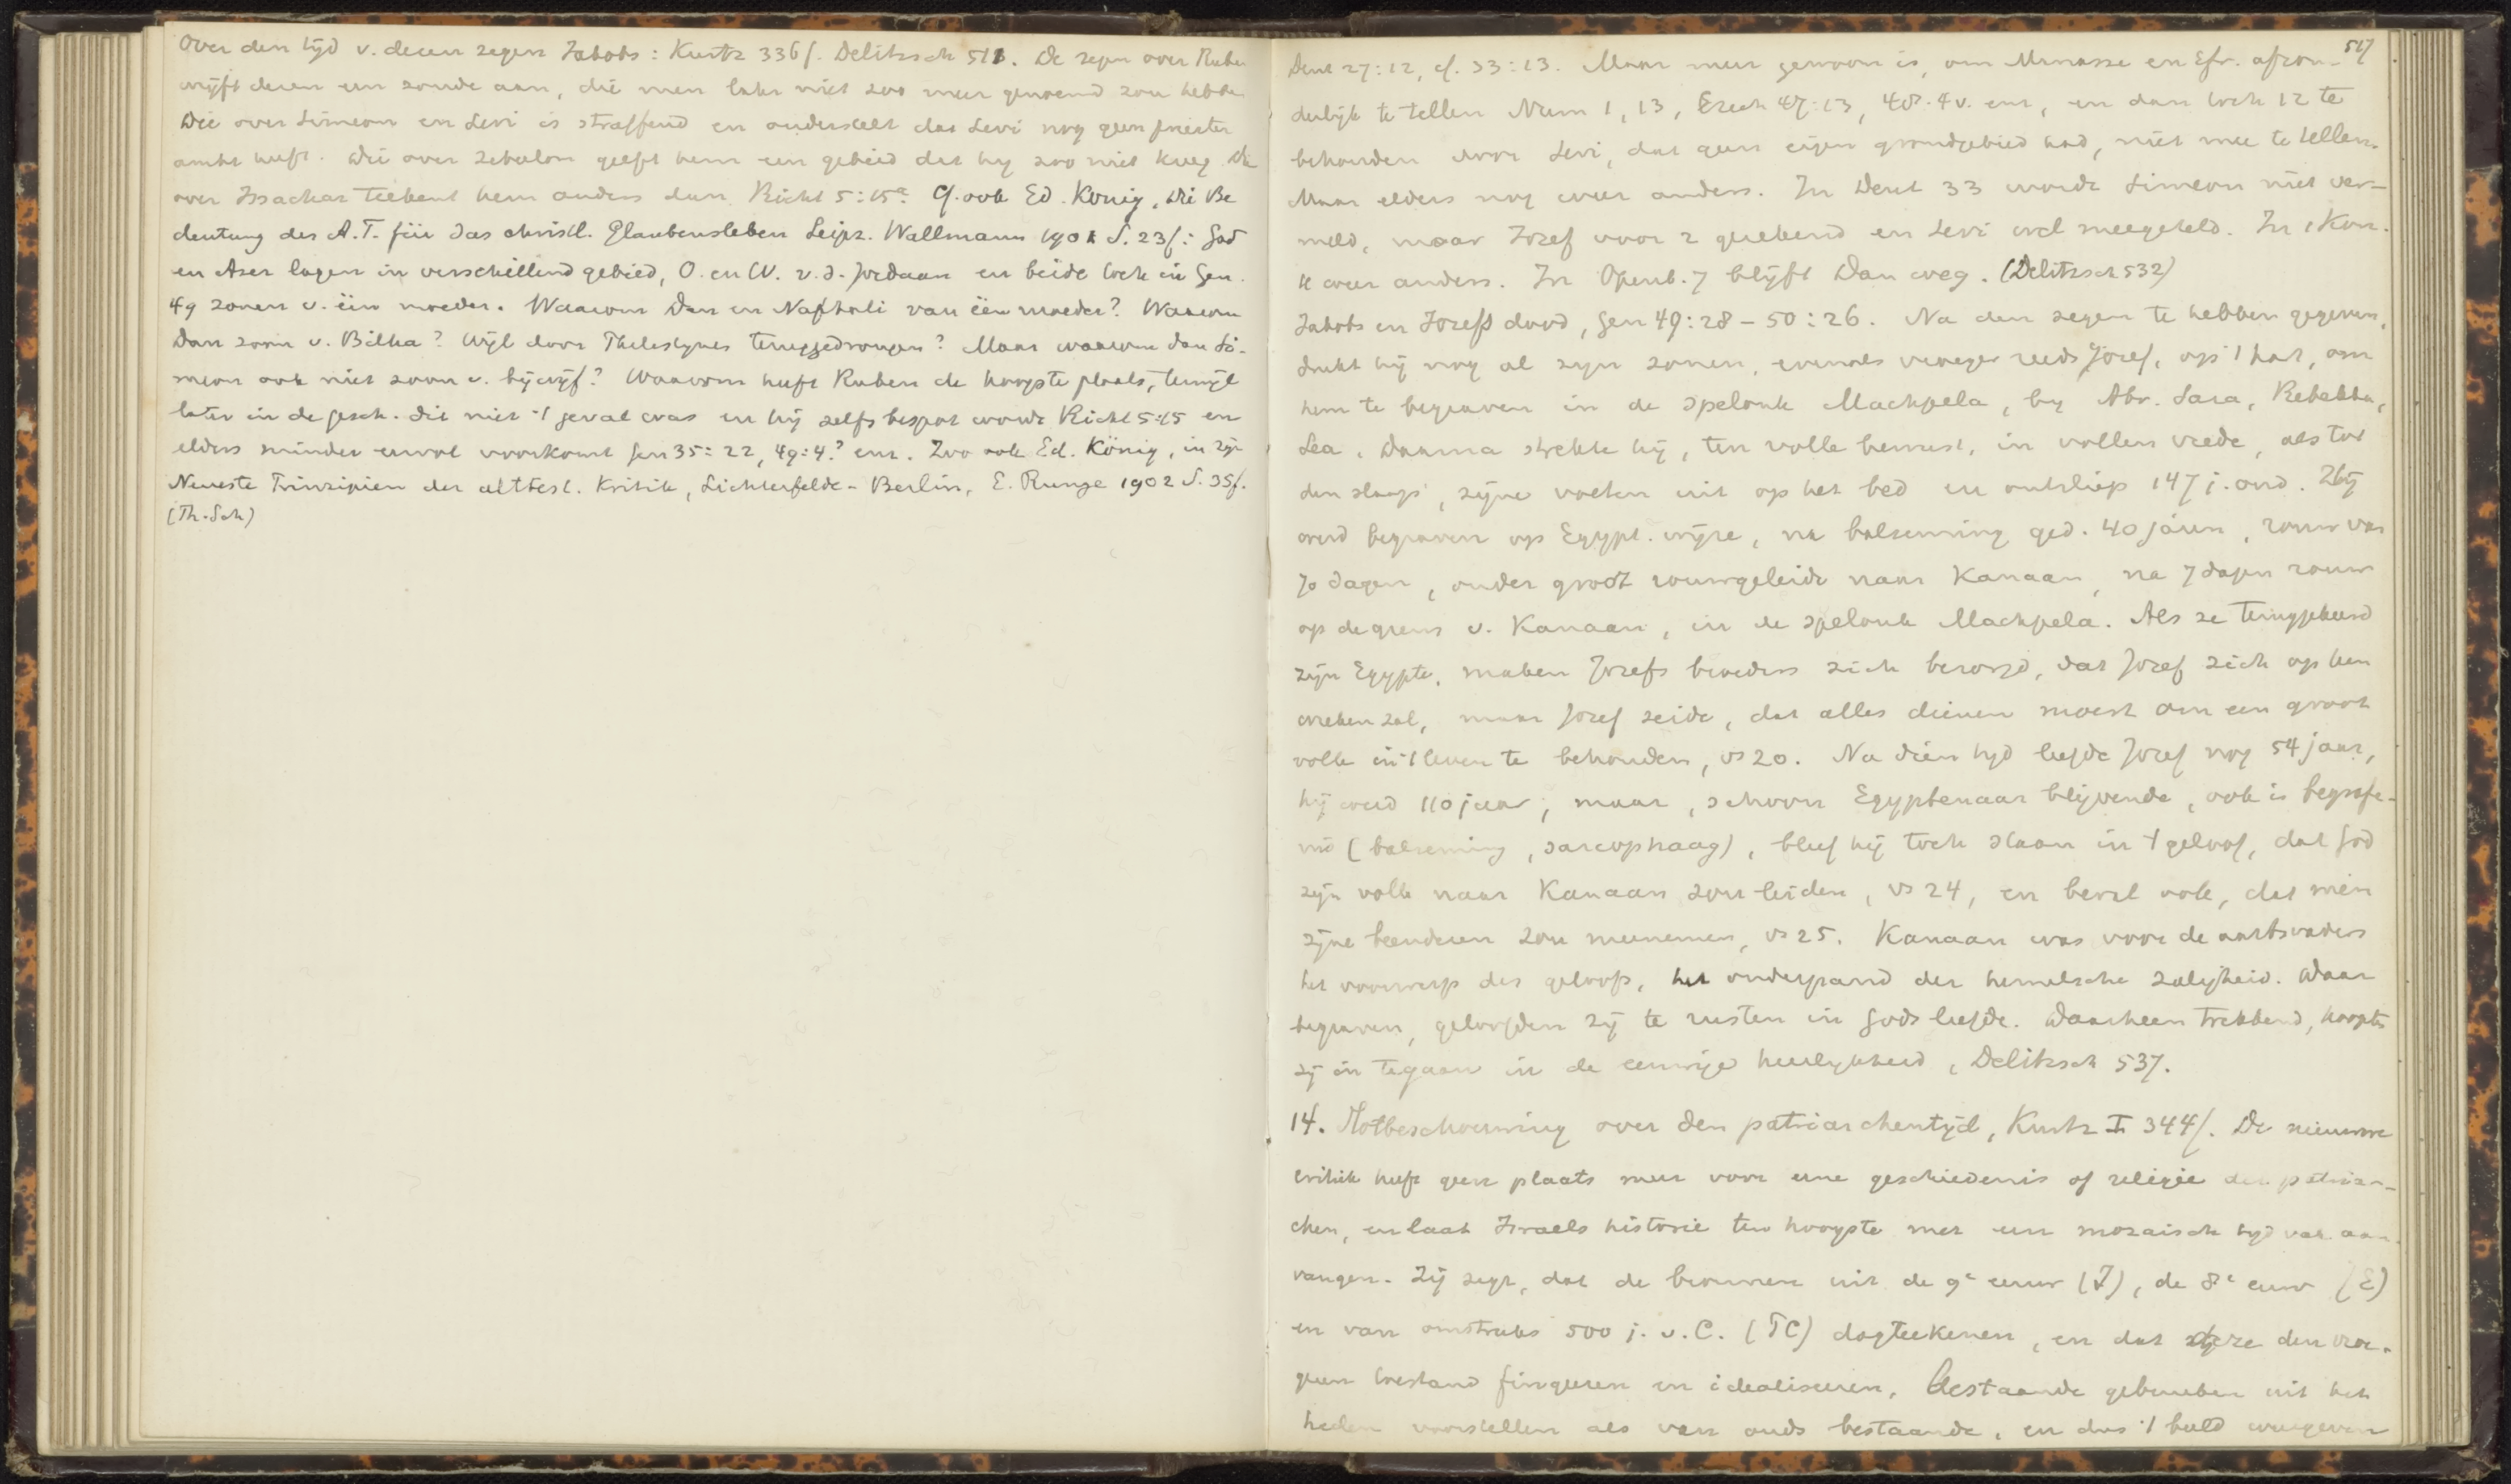 Over den tijd v. dezen zegen Jakobs: Kurtz 336f. Delitzsch 511. De zegen over Ruben
wrijft dezen een zonde aan, die men later niet zoo meer genoemd zou hebben
Die over Simeon en Levi is straffend en onderstelt dat Levi nog geen priester
ambt heeft. Die over Zebulon geeft hem een gebied dat hij zoo niet kreeg. Die
over Issachar teekent hem anders dan Richt 5:15a. Cf. ook Ed. König, Die Be
deutung des A.T. für das christl. Glaubensleben Leipz. Wallmann 1901 S. 23f: Gad
en Aser lagen in verschillend gebied, O. en W. v. d. Jordaan en beide toch in Gen.
49 zonen v. één moeder. Waarom Dan en Nafthali van één moeder? Waarom
Dan zoon v. Bilha? Wijl door Philistijnen teruggedrongen? Maar waarom dan Si-
meon ook niet zoon v. bijwijf? Waarom heeft Ruben de hoogste plaats, terwijl
later in de gesch. dit niet 't geval was en hij zelfs bespot wordt Richt 5:15 en
elders minder eervol voorkomt Gen 35:22, 49:4? enz. Zoo ook Ed. König, in zijn
Neueste Prinzipien der alttest. Kritik, Lichterfelde-Berlin, E. Runge 1902 S. 35f.
(Th. Sch)
517
Deut 27:12, cf. 33:13. Maar meer gewoon is, om Manasse en Efr. afzon-
derlijk te tellen Num 1, 13, Ezech 47:13, 48:4v. enz, en dan toch 12 te
behouden door Levi, dat geen eigen grondgebied had, niet mee te tellen.
Maar elders nog weer anders. In Deut 33 wordt Simeon niet ver-
meld, maar Jozef voor 2 gerekend en Levi wel meegeteld. In 1 Kon.
11 weer anders. In Openb. 7 blijft Dan weg. (Delitzsch 532)
Jakobs en Jozefs dood, Gen 49:28 - 50:26. Na den zegen te hebben gegeven,
drukt hij nog al zijn zonen, evenals vroeger reeds Jozef, op 't hart, om
hem te begraven in de spelonk Machpela, bij Abr. Sara, Rebekka,
Lea. Daarna strekte hij, ten volle bewust, in vollen vrede, als tot
den slaap, zijne voeten uit op het bed en ontsliep 147 j. oud. Hij
werd begraven op Egypt. wijze, na balseming ged. 40 dagen, rouw van
70 dagen, onder groot rouwgeleide naar Kanaan, na 7 dagen rouw
op de grens v. Kanaan, in de spelonk Machpela. Als ze teruggekeerd
zijn Egypte, maken Jozefs broeders zich bezorgd, dat Jozef zich op hen
wreken zal, maar Jozef zeide, dat alles dienen moest om een groot
volk in 't leven te behouden, vs 20. Na dien tijd leefde Jozef nog 54 jaar,
hij werd 110 jaar; maar, schoon Egyptenaar blijvende, ook in begrafe-
nis (balseming, sarcophaag), bleef hij toch staan in 't geloof, dat God
zijn volk naar Kanaan zou leiden, vs 24, en beval ook, dat men
zijne beenderen zou meenemen, vs 25. Kanaan was voor de aartsvaders
het voorwerp des geloofs, het onderpand der hemelsche zaligheid. Daar
begraven, geloofden zij te rusten in Gods liefde. Daarheen trekkend, hoopten
zij in te gaan in de eeuwige heerlijkheid, Delitzsch 537.
14. Slotbeschouwing over den patriarchentijd, Kurtz I 344f. De nieuwere
critiek heeft geen plaats meer voor eene geschiedenis of religie der patriar-
chen, en laat Israels historie ten hoogste met een mozaisch tijdvak aan-
vangen. Zij zegt, dat de bronnen uit de 9e eeuw (J), de 8e eeuw (E)
en van omstreeks 500 j. v. C. (PC) dagteekenen, en dat deze den vroe-
geren toestand fingeren en idealiseren, bestaande gebruiken uit het
heden voorstellen als van ouds bestaande, en dus 't beeld weergeven